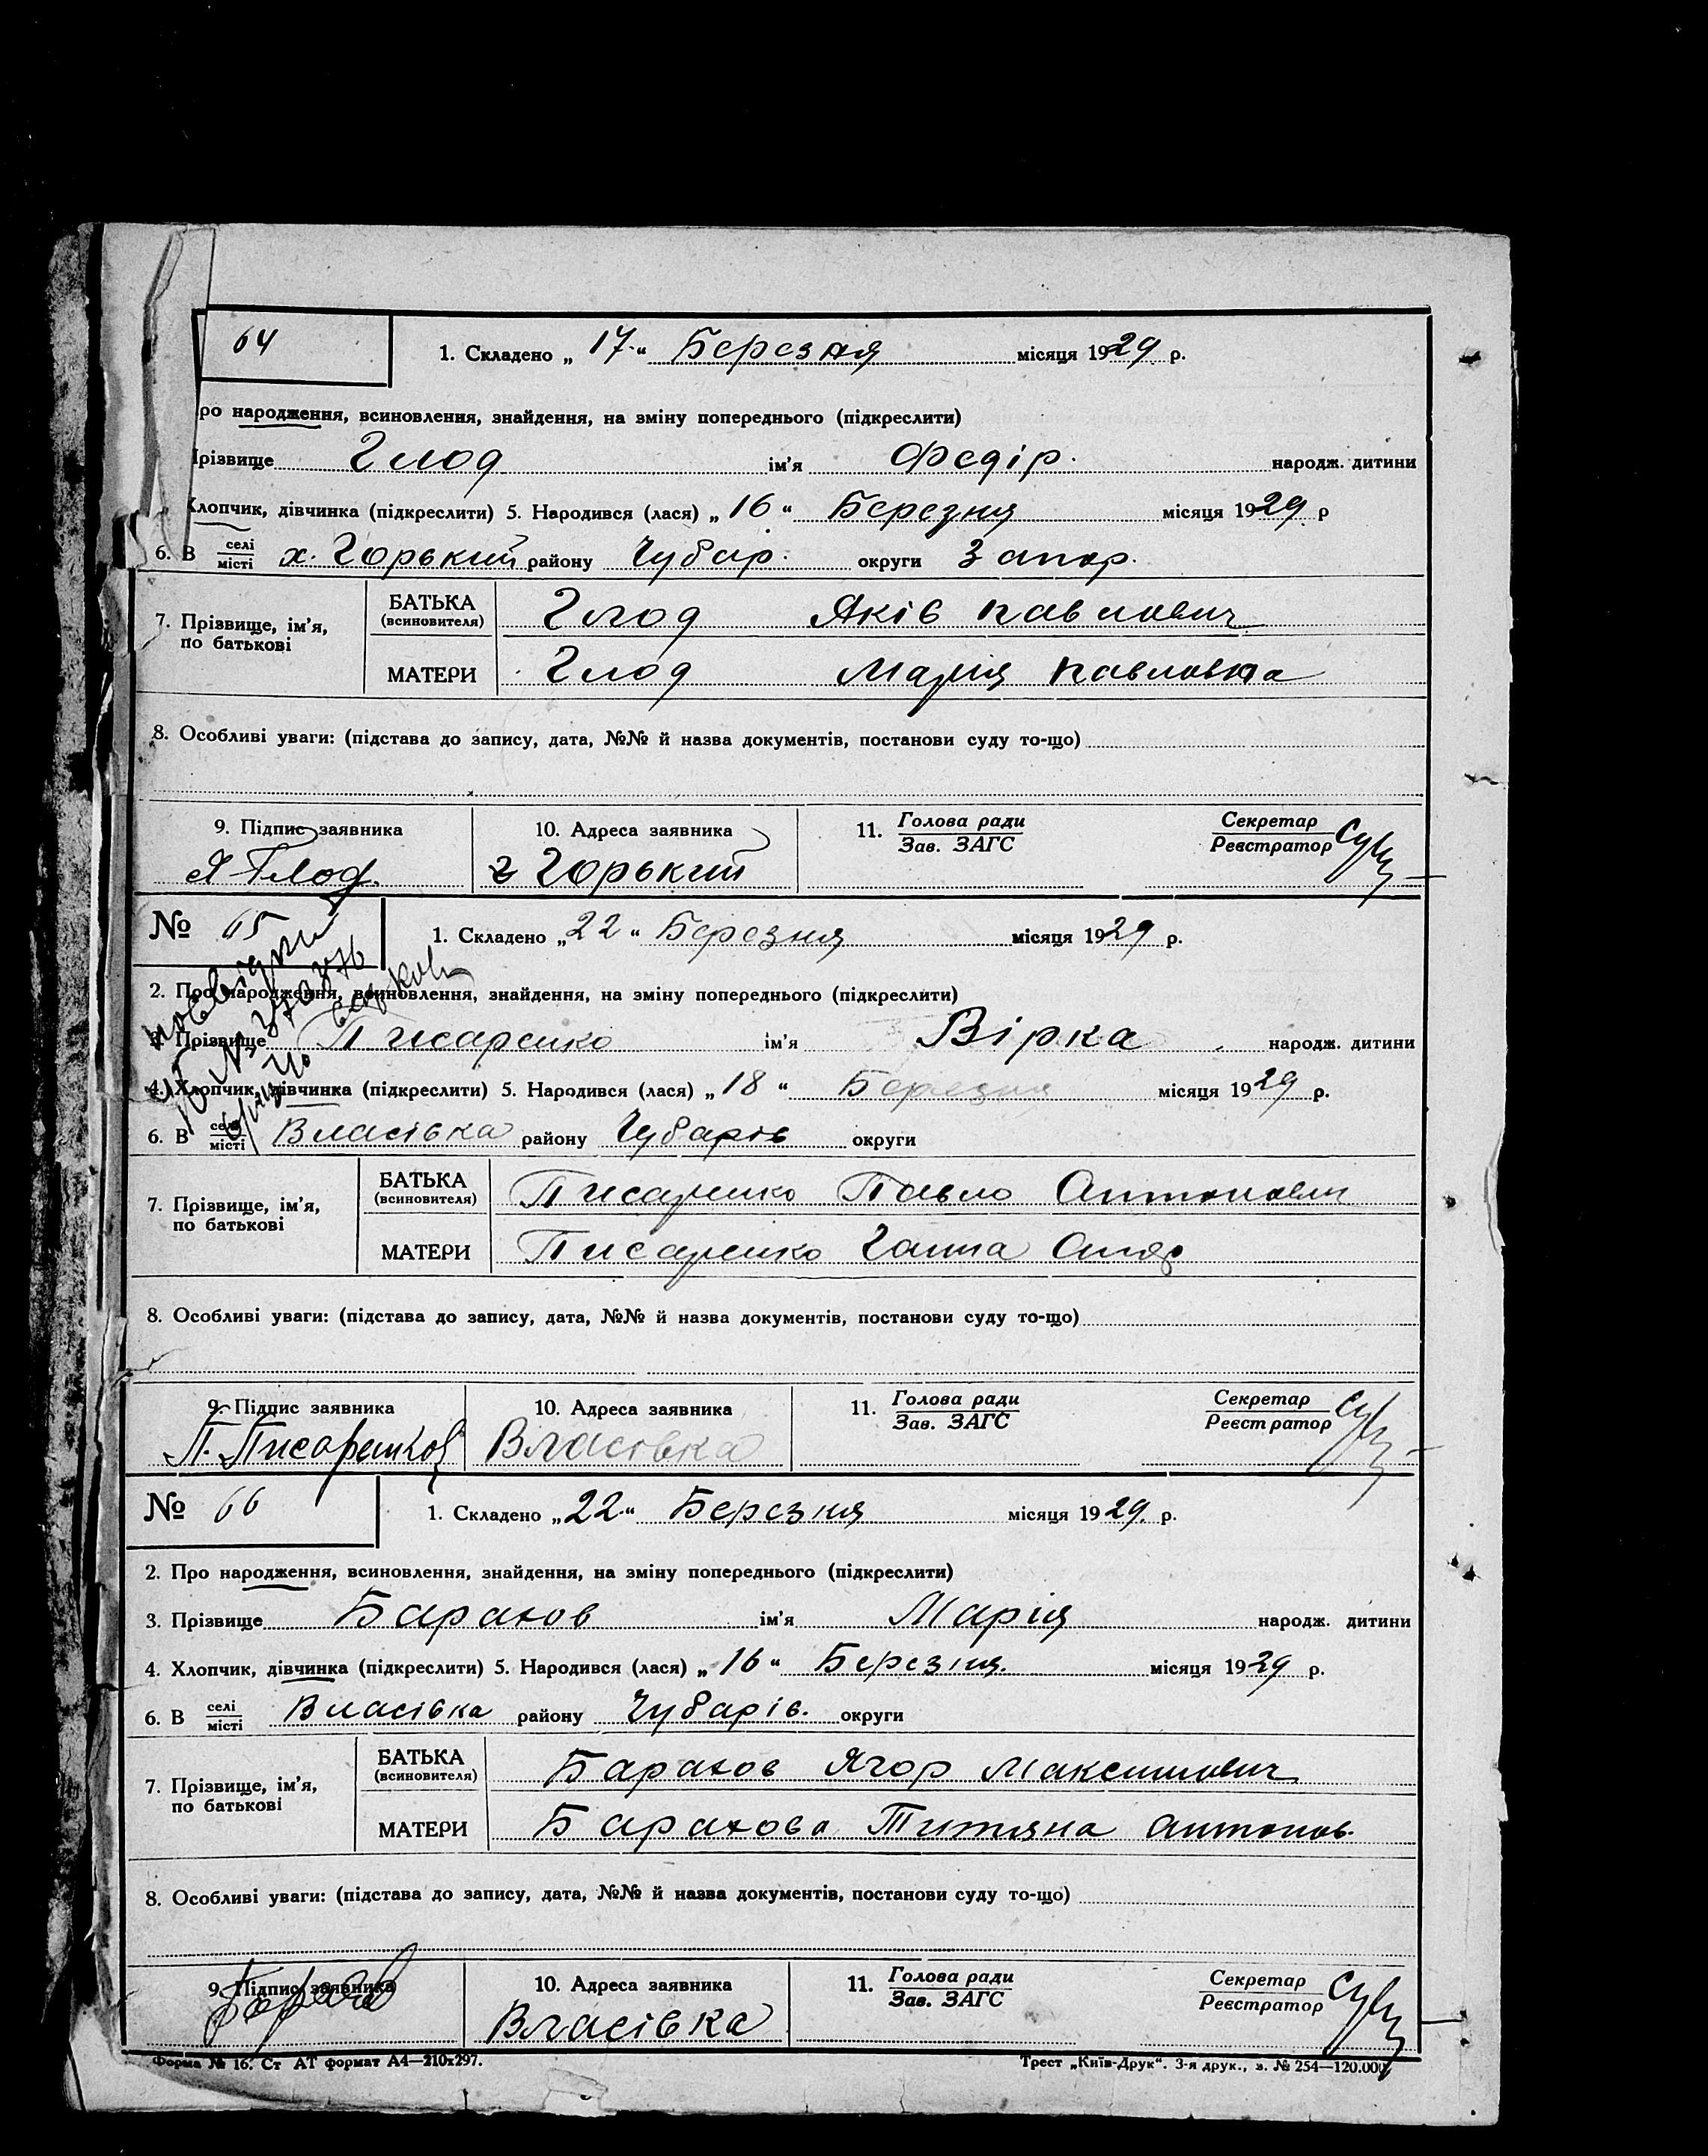 64
1. Складено „ 17 “ Березня місяця 1929 р.
ро народження, всиновлення, знайдення, на зміну попереднього (підкреслити)
Прізвище Глод ім’я Федір народж. дитини
Хлопчик, дівчинка (підкреслити) 5. Народився (лася) „ 16 “ Березня місяця 1929 р
6. В селі місті х. Горький району Чубар. округи Запор.
7. Прізвище, ім’я, по батькові
БАТЬКА (всиновителя) Глод Яків Павлович
МАТЕРИ Глод Марія Павловна
8. Особливі уваги: (підстава до запису, дата, №№ й назва документів, постанови суду то-що)
9. Підпис заявника 10. Адреса заявника 11. Голова ради Зав. ЗАГС Секретар Реєстратор
Я Глод Горький
№ 65 1. Складено „ 22 “ Березня місяця 1929 р.
2. Про народження, всиновлення, знайдення, на зміну попереднього (підкреслити)
3. Прізвище Писаренко ім’я Вірка народж. дитини
4. Хлопчик, дівчинка (підкреслити) 5. Народився (лася) „ 18 “ Березня місяця 1929 р.
6. В селі місті Власівка району Чубарів округи
7. Прізвище, ім’я, по батькові
БАТЬКА (всиновителя) Писаренко Павло Антонович
МАТЕРИ Писаренко Ганна
8. Особливі уваги: (підстава до запису, дата, №№ й назва документів, постанови суду то-що)
9. Підпис заявника 10. Адреса заявника 11. Голова ради Зав. ЗАГС Секретар Реєстратор
П. Писаренков Власівка
№ 66 1. Складено „ 22 “ Березня місяця 1929. р.
2. Про народження, всиновлення, знайдення, на зміну попереднього (підкреслити)
3. Прізвище Барахов ім’я Марія народж. дитини
4. Хлопчик, дівчинка (підкреслити) 5. Народився (лася) „ 16 “ Березня. місяця 1929 р.
6. В селі місті Власівка району Чубарів. округи
7. Прізвище, ім’я, по батькові
БАТЬКА (всиновителя) Барахов Ягор Максимович
МАТЕРИ Барахова Титяна Антонов.
8. Особливі уваги: (підстава до запису, дата, №№ й назва документів, постанови суду то-що)
9. Підпис заявника 10. Адреса заявника 11. Голова ради Зав. ЗАГС Секретар Реєстратор
Власівка
Форма № 16. Ст АТ формат А4—210х297. Трест „Київ-Друк“. 3-я друк., з. № 254—120.000.